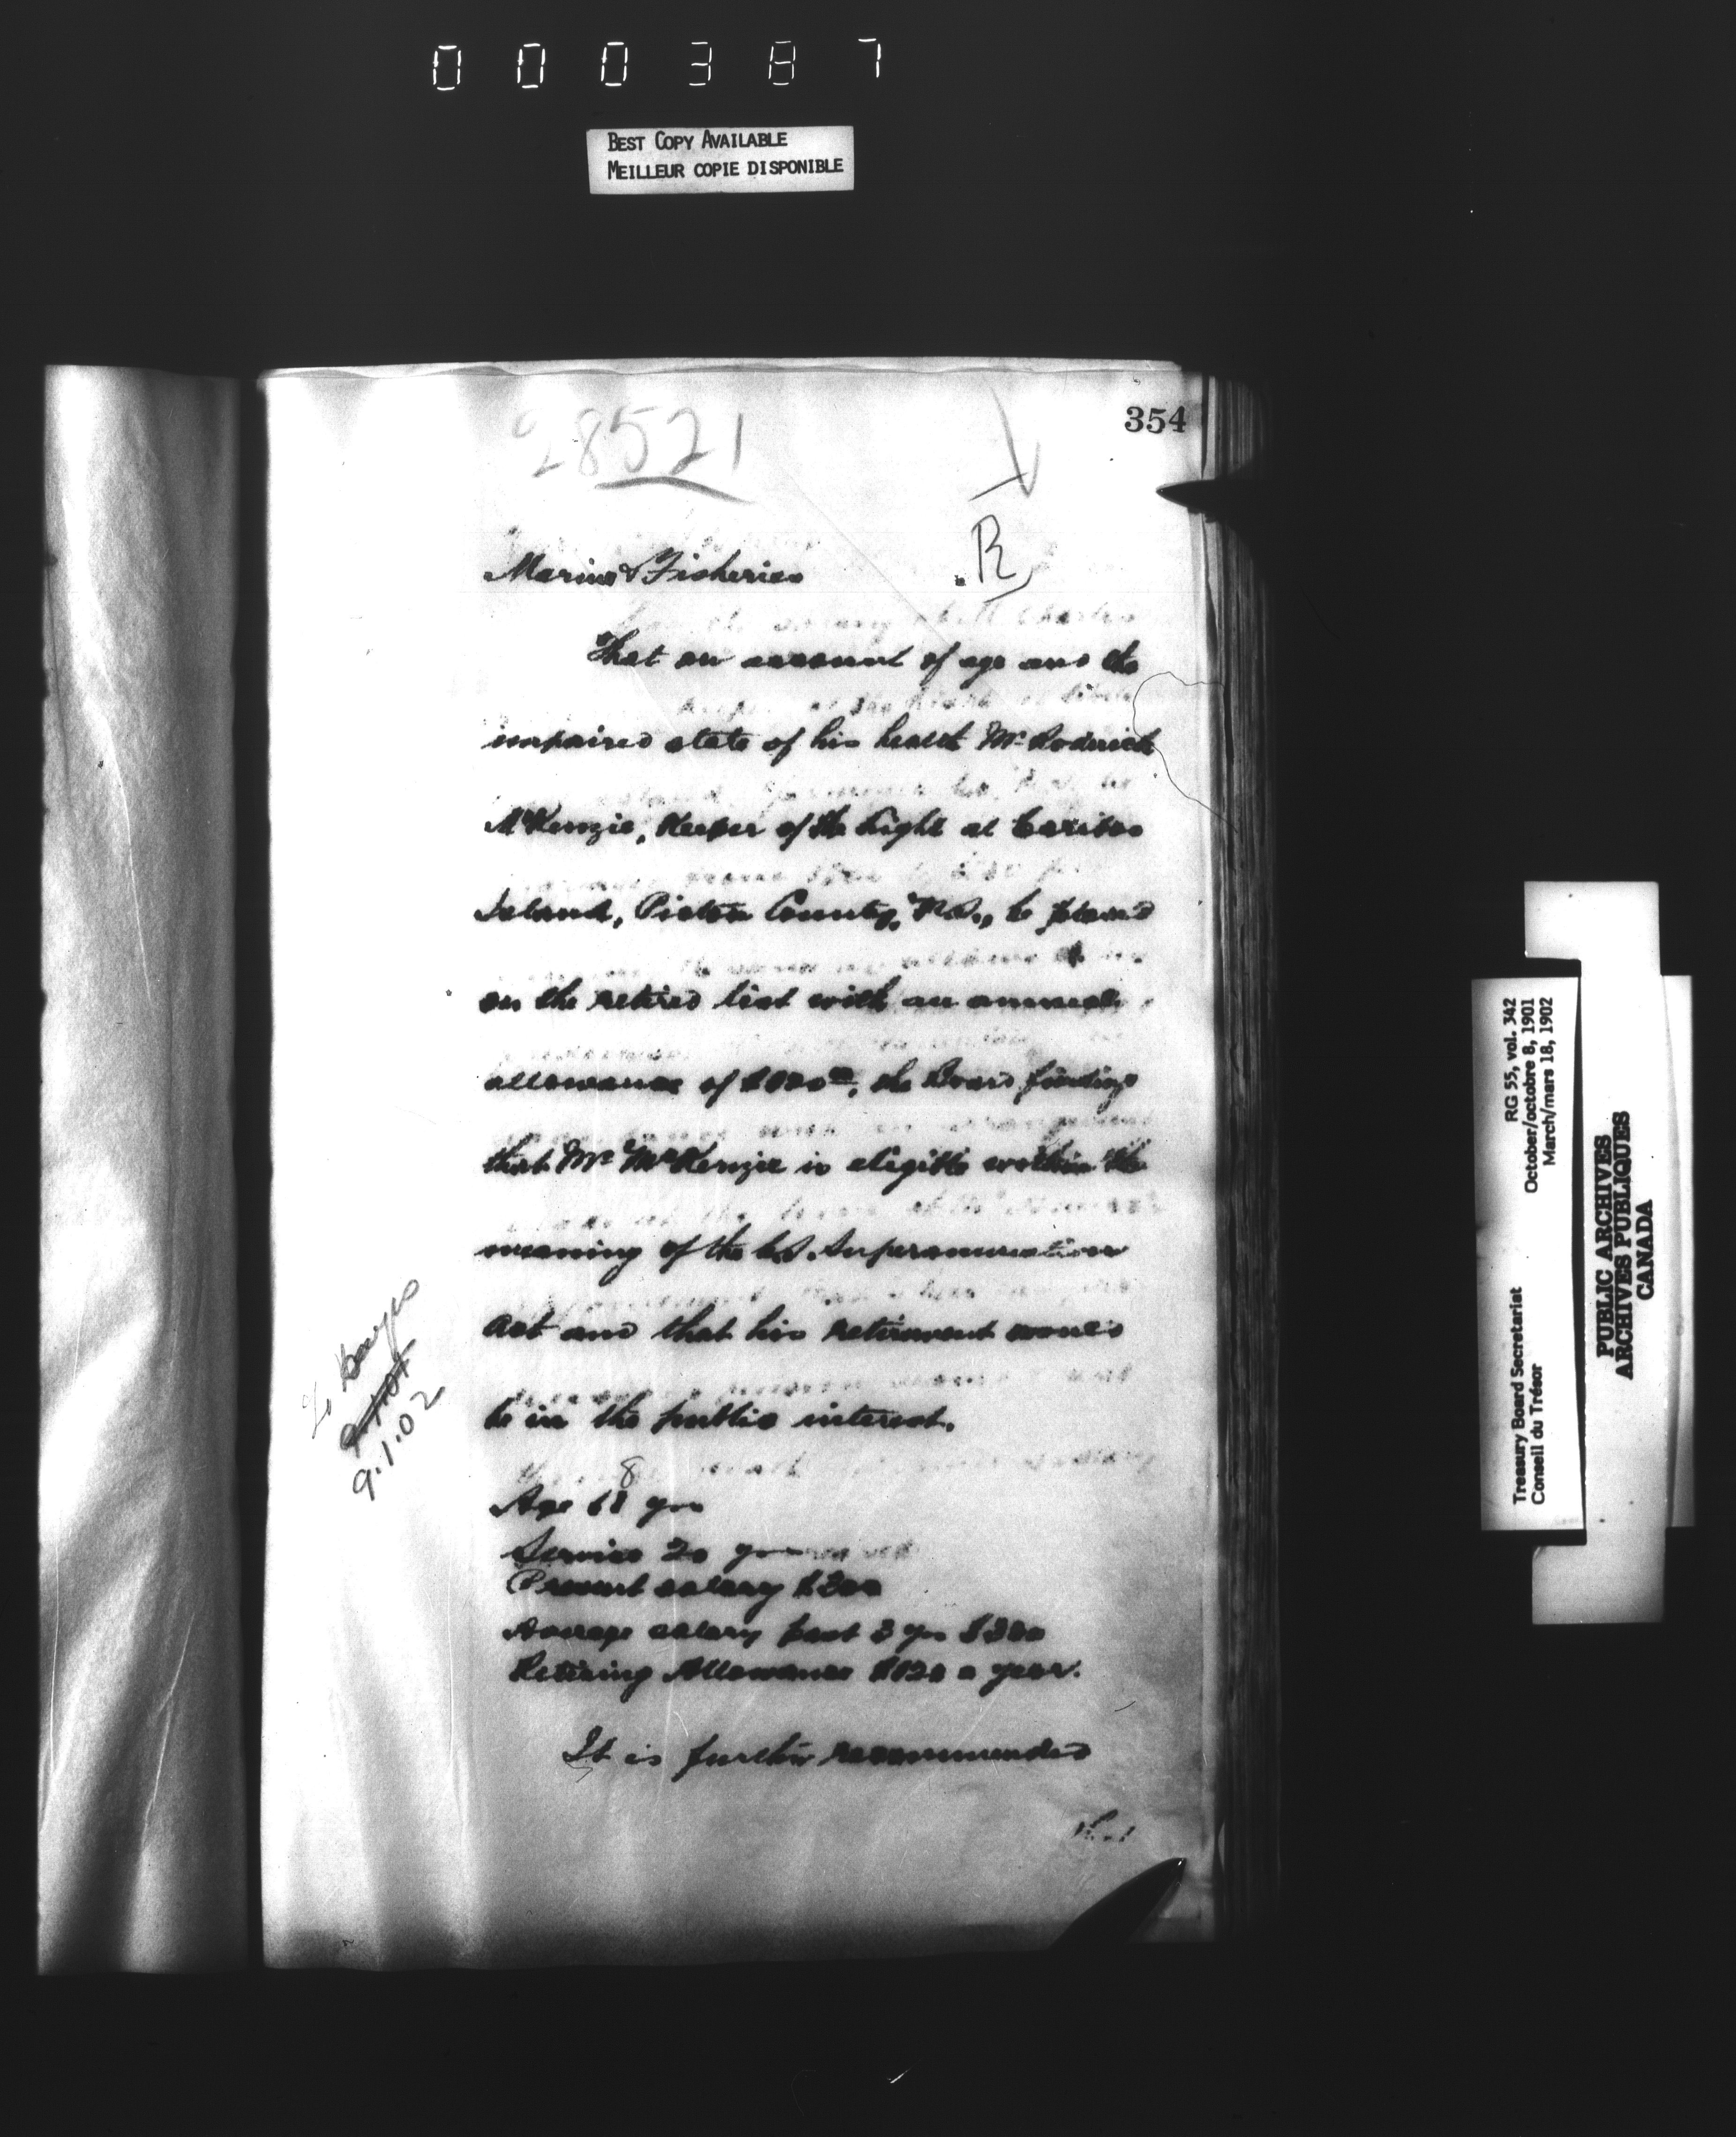 000387
BEST COPY AVAILABLE
MEILLEUR COPIE DISPONIBLE
354
28521
R
Marine & Fisheries
That on account of age and the
impaired state of his health Mr Roderick
McKenzie, Keeper of the Light at Caribou
Island, Pictou County, N.S., be placed
on the retired list with an annual
allowance of $120 00, the Board finding
that Mr McKenzie is eligible within the
meaning of the C.S. Superannuation
Act and that his retirement would
be in the public interest.
8
Age 68 yrs
Service 20 yrs
Present salary $300
Average salary past 3 yrs $300
Retiring Allowance $120 a year.
It is further recommended
that
To
9.1.02
Treasury Board Secretariat RG 55, vol. 342
Conseil du Trésor October/octobre 8, 1901
March/mars 18, 1902
PUBLIC ARCHIVES
ARCHIVES PUBLIQUES
CANADA